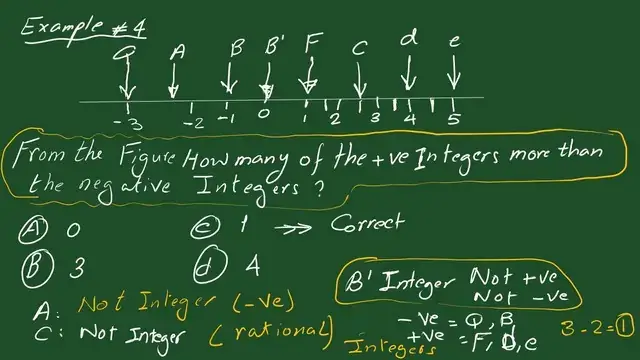 Example #4
Q A B B' F C d e
-3 -2 -1 0 1 2 3 4 5
From the Figure How many of the +ve Integers more than
the negative Integers?
(A) 0 (c) 1 →» Correct
(B) 3 (d) 4
B' Integer Not +ve
Not -ve
A: Not Integer (-ve)
C: Not Integer (rational)
-ve = Q, B
Integers +ve = F, d, e
3-2=1